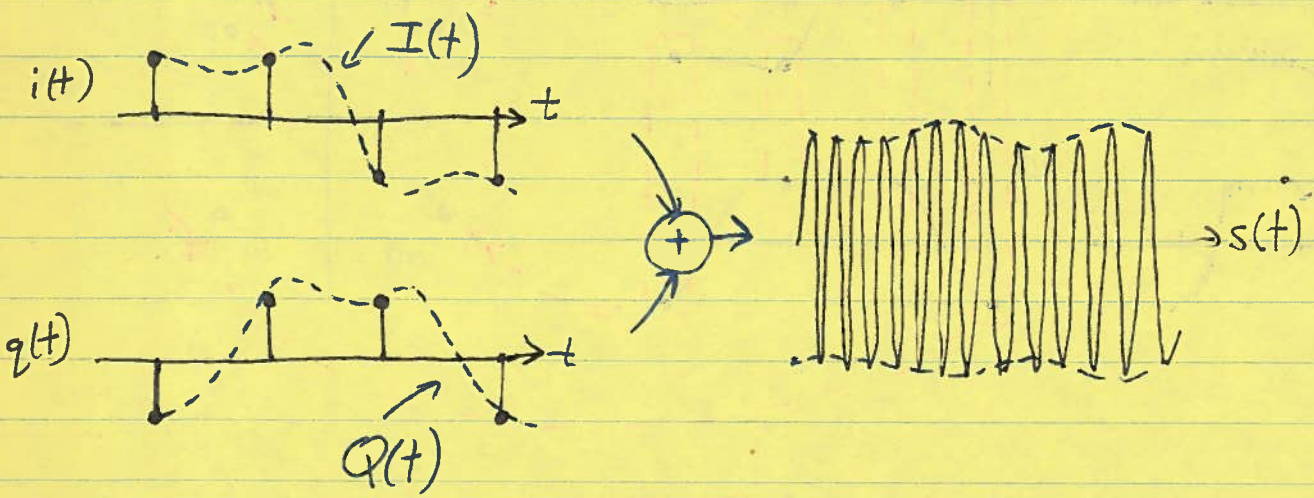 I(t)
i(t)
t
+
s(t)
q(t)
t
Q(t)